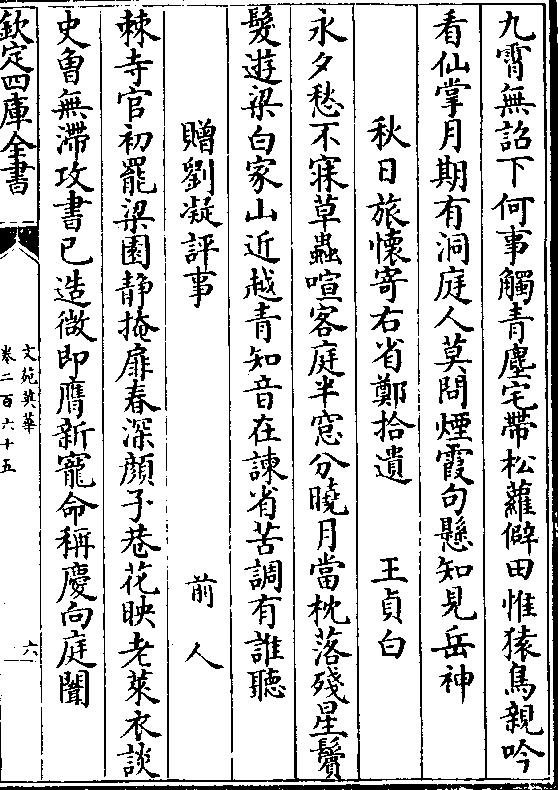 九霄無詔下何事觸青塵宅帶松蘿僻田惟猿鳥親吟
看仙掌月期有洞庭人莫問煙霞句懸知見岳神
秋日旅懷寄右省鄭拾遺　王貞白
永夕愁不寐草蟲喧客庭半窓分曉月當枕落殘星鬢
髮遊梁白家山近越青知音在諫省苦調有誰聽
贈劉凝評事　前人
棘寺官初罷梁園静掩扉春深顔子巷花映老萊衣談
史曾無滯攻書已造微即膺新寵命稱慶向庭闈
欽定四庫全書
文苑英華
卷二百六十五
六